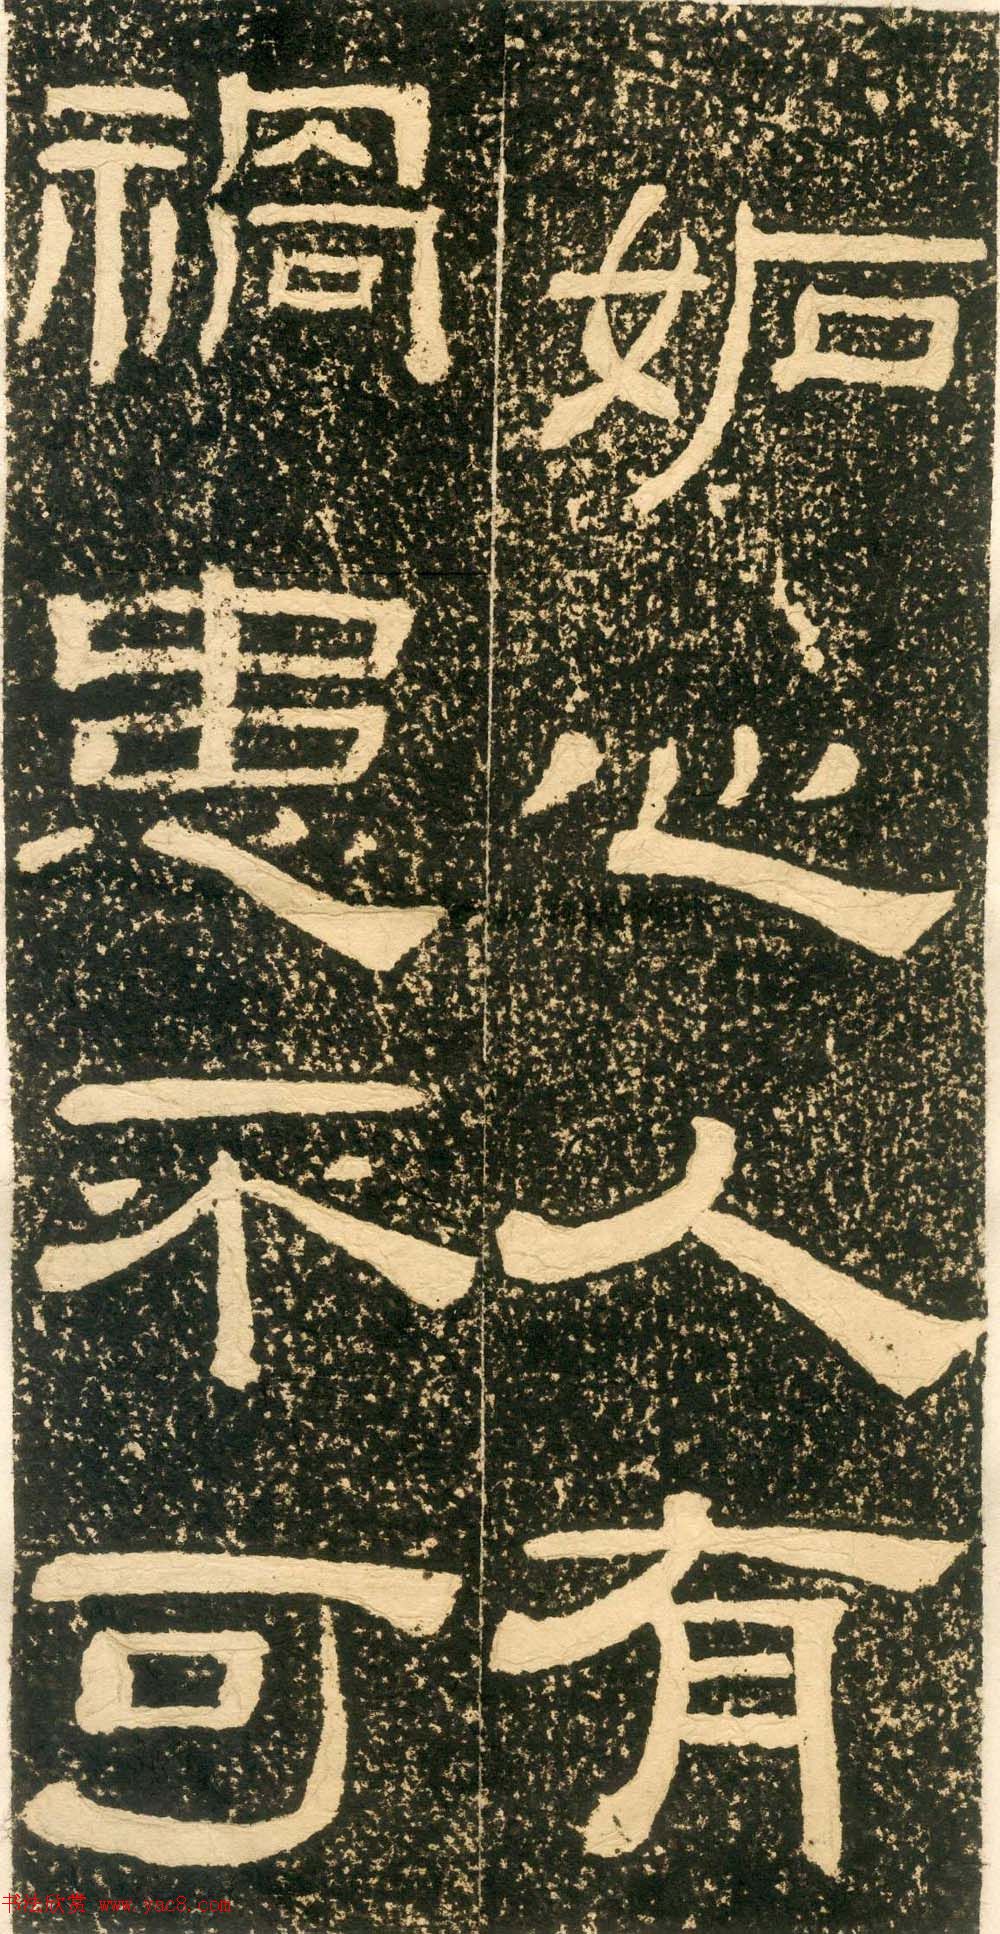 妬心人有
禍患不可
书法欣赏 www.yac8.com